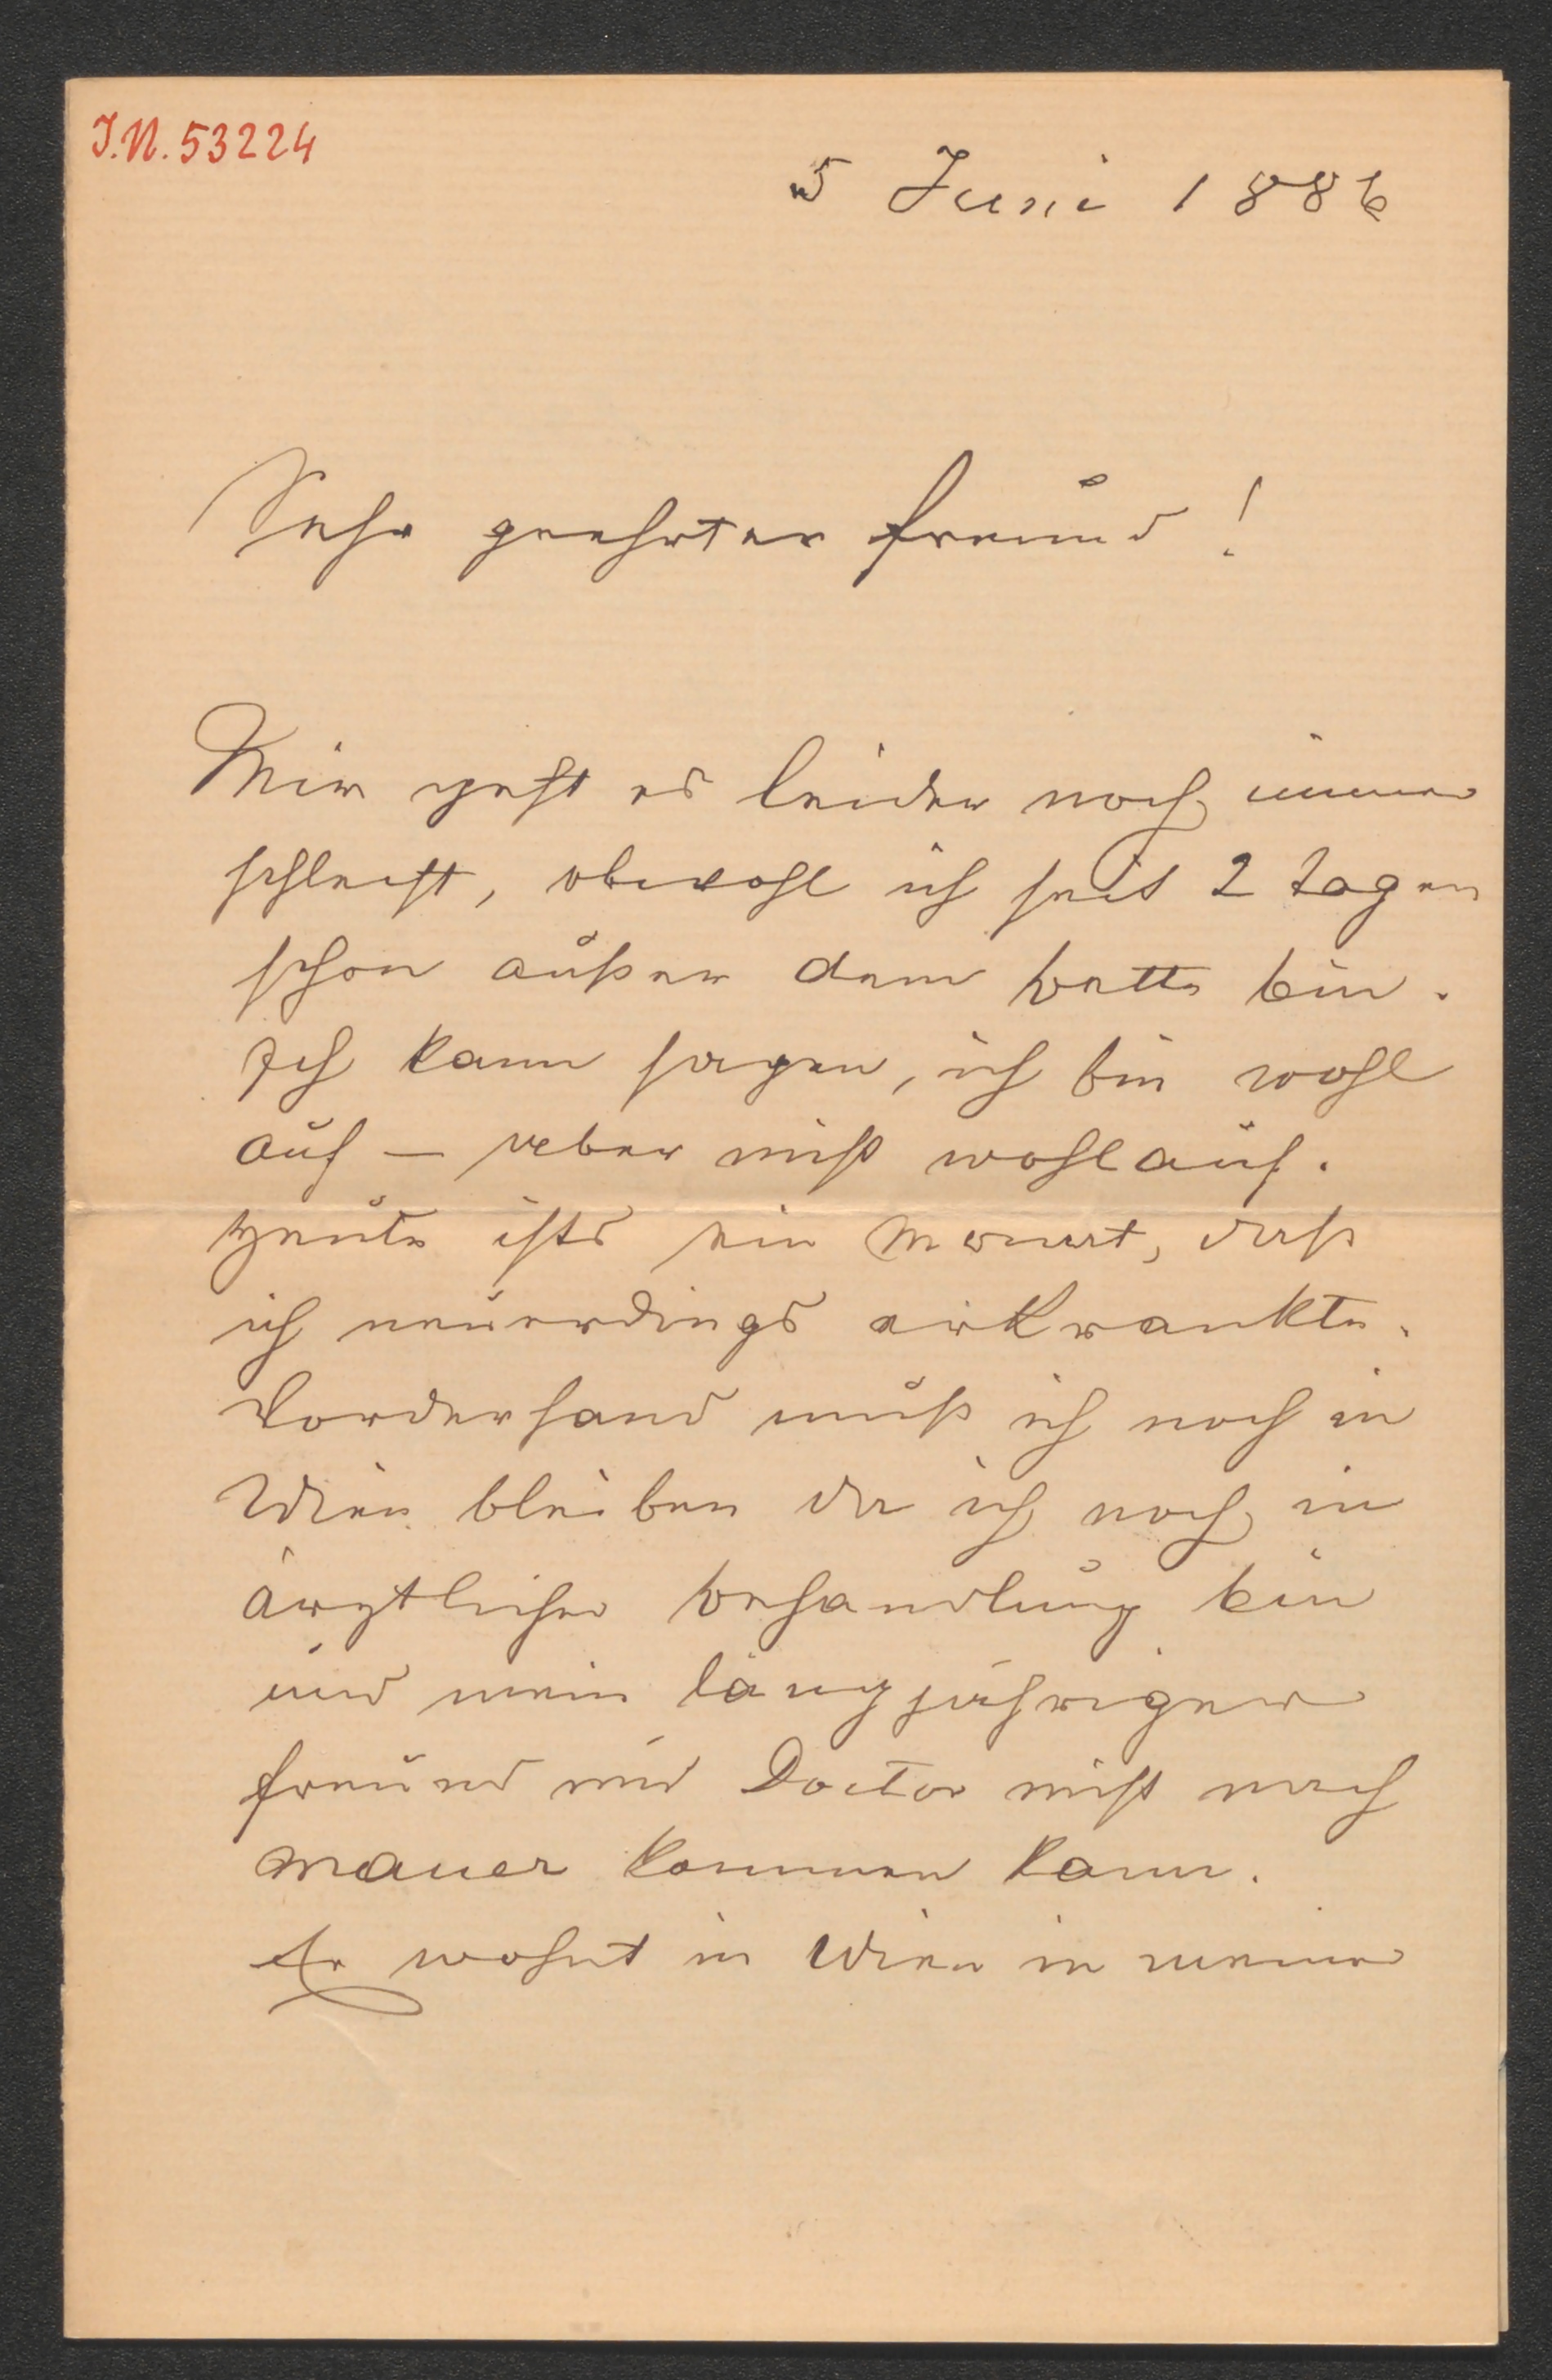 I.N. 53224
5 Juni 1886
Sehr geehrter Freund!
Mir geht es leider noch immer
schlecht, obwohl ich seit 2 Tagen
schon außer dem Bette bin.
Ich kann sagen, ich bin wohl
auf – aber nicht wohlauf.
Heute ists ein Monat, daß
ich neuerdings erkrankte.
Vorderhand muß ich noch in
Wien bleiben da ich noch in
ärztlicher Behandlung bin
und mein langjähriger
Freund und Doctor nicht nach
Mauer kommen kann.
Er wohnt in Wien in meiner